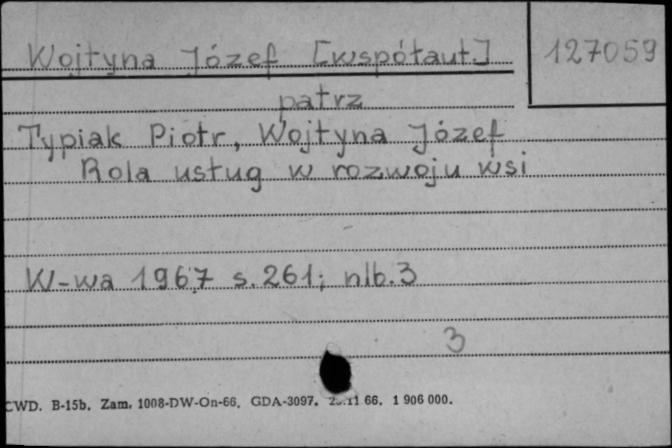 Wojtyna Józef [współaut.]
127059
patrz
Typiak Piotr, Wojtyna Józef
Rola usług w rozwoju wsi
W-wa 1967 s. 261; nlb. 3
3
CWD. B-15b. Zam. 1008-DW-On-66. GDA-3097. 11 66. 1 906 000.